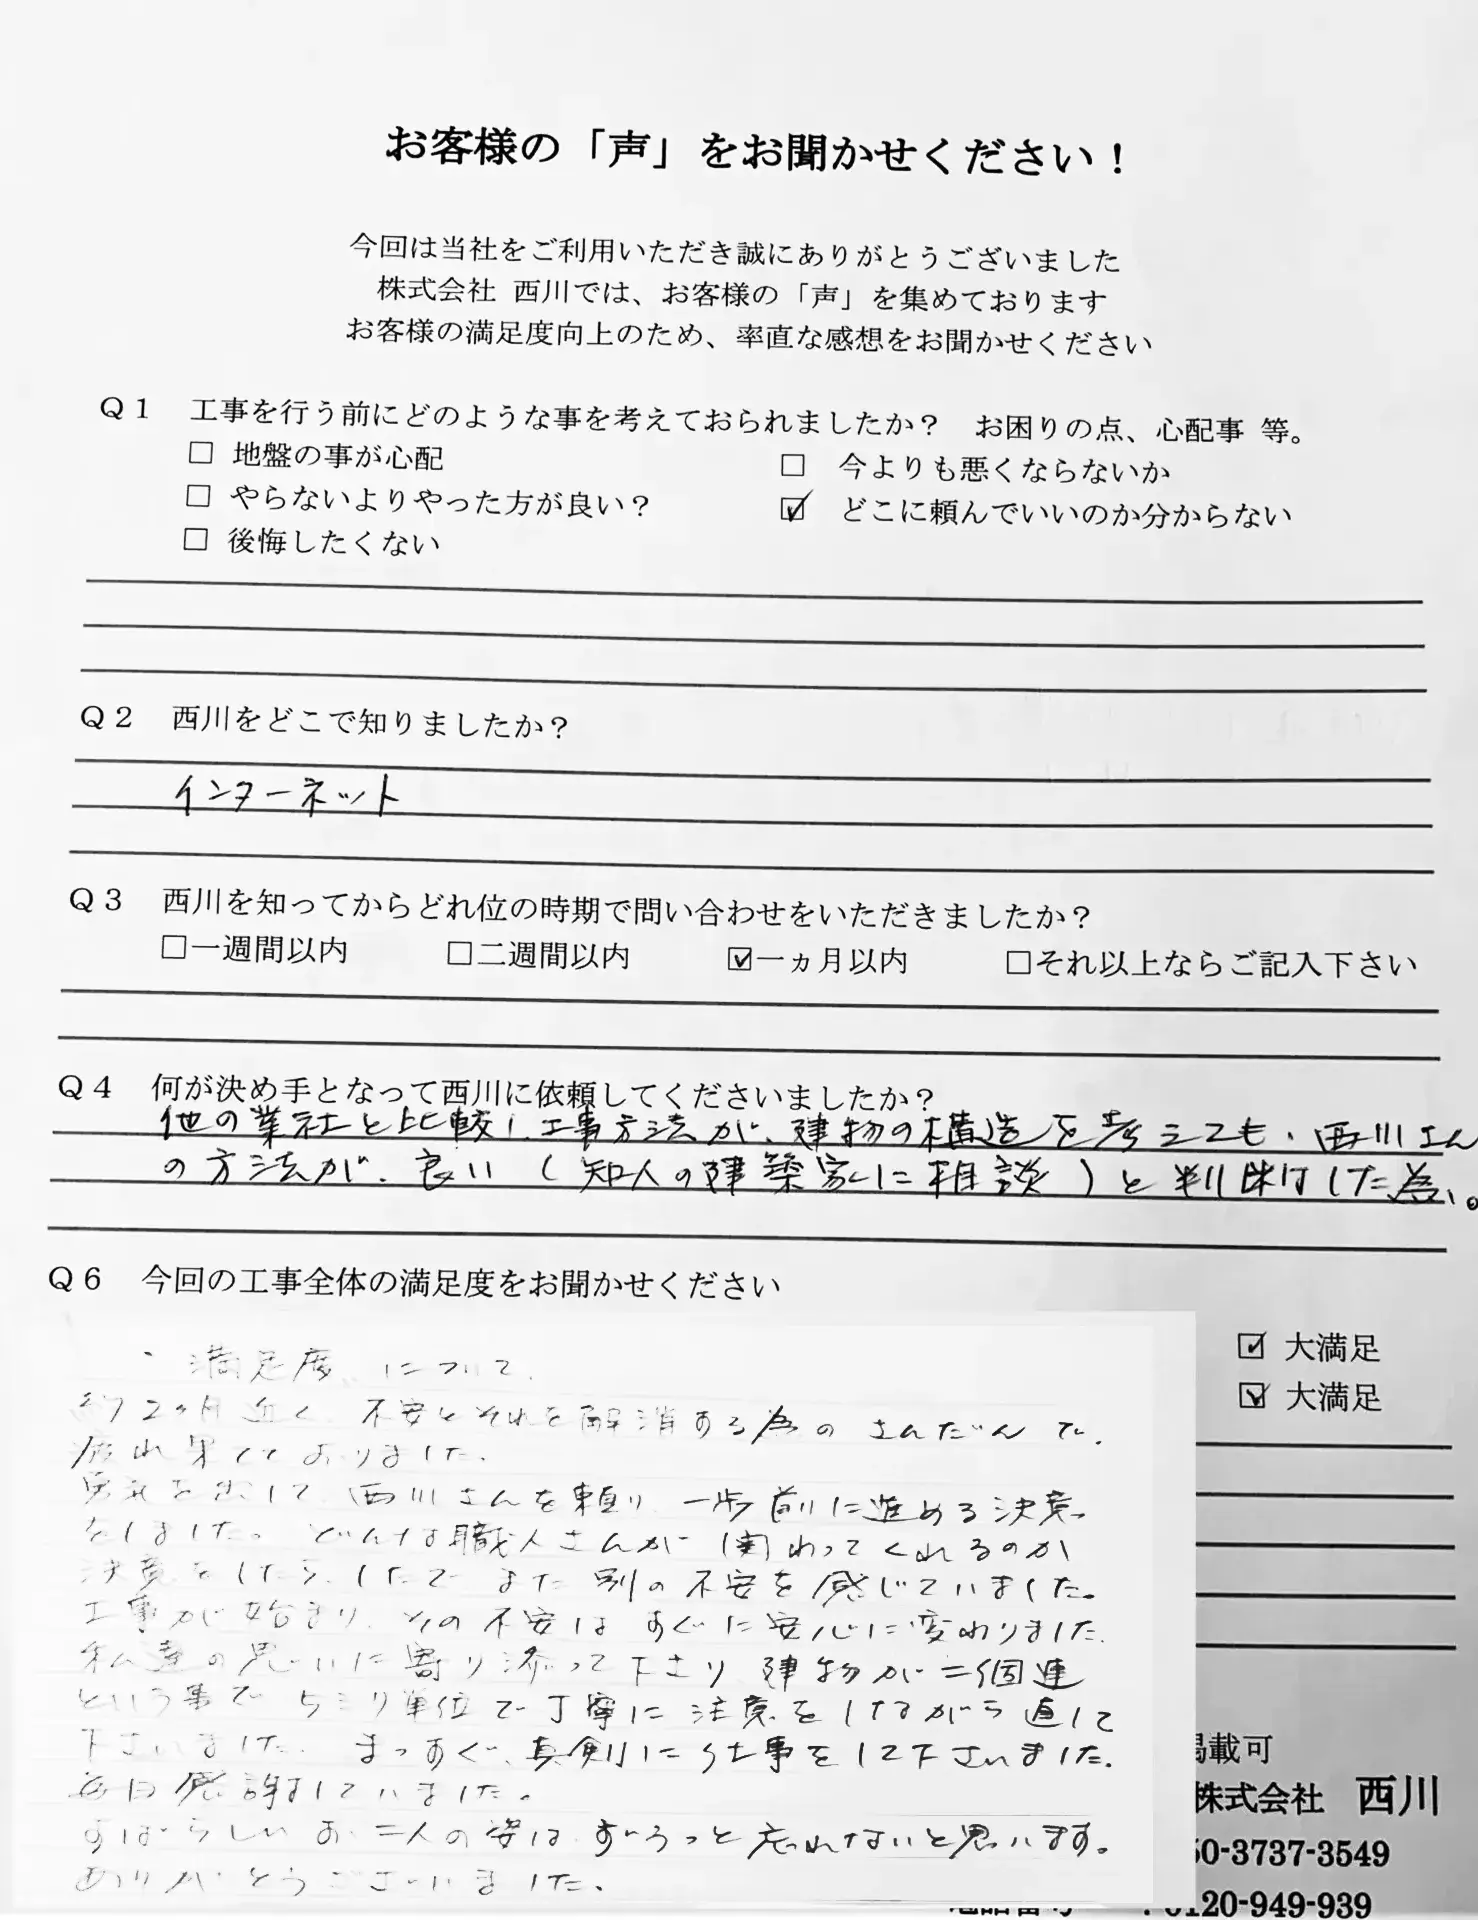 お客様の「声」をお聞かせください！
今回は当社をご利用いただき誠にありがとうございました
株式会社 西川では、お客様の「声」を集めております
お客様の満足度向上のため、率直な感想をお聞かせください
Ｑ１　工事を行う前にどのような事を考えておられましたか？　お困りの点、心配事 等。
□ 地盤の事が心配　□ 今よりも悪くならないか
□ やらないよりやった方が良い？　☑ どこに頼んでいいのか分からない
□ 後悔したくない
Ｑ２　西川をどこで知りましたか？
インターネット
Ｑ３　西川を知ってからどれ位の時期で問い合わせをいただきましたか？
□一週間以内　□二週間以内　☑一ヵ月以内　□それ以上ならご記入下さい
Ｑ４　何が決め手となって西川に依頼してくださいましたか？
他の業社と比較し、工事方法が、建物の構造を考えても、西川さん
の方法が、良い（知人の建築家に相談）と判断した為。
Ｑ６　今回の工事全体の満足度をお聞かせください
☑ 大満足
☑ 大満足
〝満足度〟について、
約2ヶ月近く、不安とそれを解消する為のさんだんで、
疲れ果てておりました。
勇気を出して、西川さんを頼り、一歩前に進める決意
をしました。どんな職人さんが関わってくれるのか
決意をしたら、したでまた別の不安を感じていました。
工事が始まり、その不安はすぐに安心に変わりました。
私達の思いに寄り添って下さり、建物が二個連
という事で 5ミリ単位で丁寧に注意をしながら直して
下さいました。まっすぐ、真剣に仕事をして下さいました。
毎日感謝していました。
すばらしいお二人の姿は、ずうっと忘れないと思います。
ありがとうございました。
掲載可
株式会社　西川
50-3737-3549
：0120-949-939